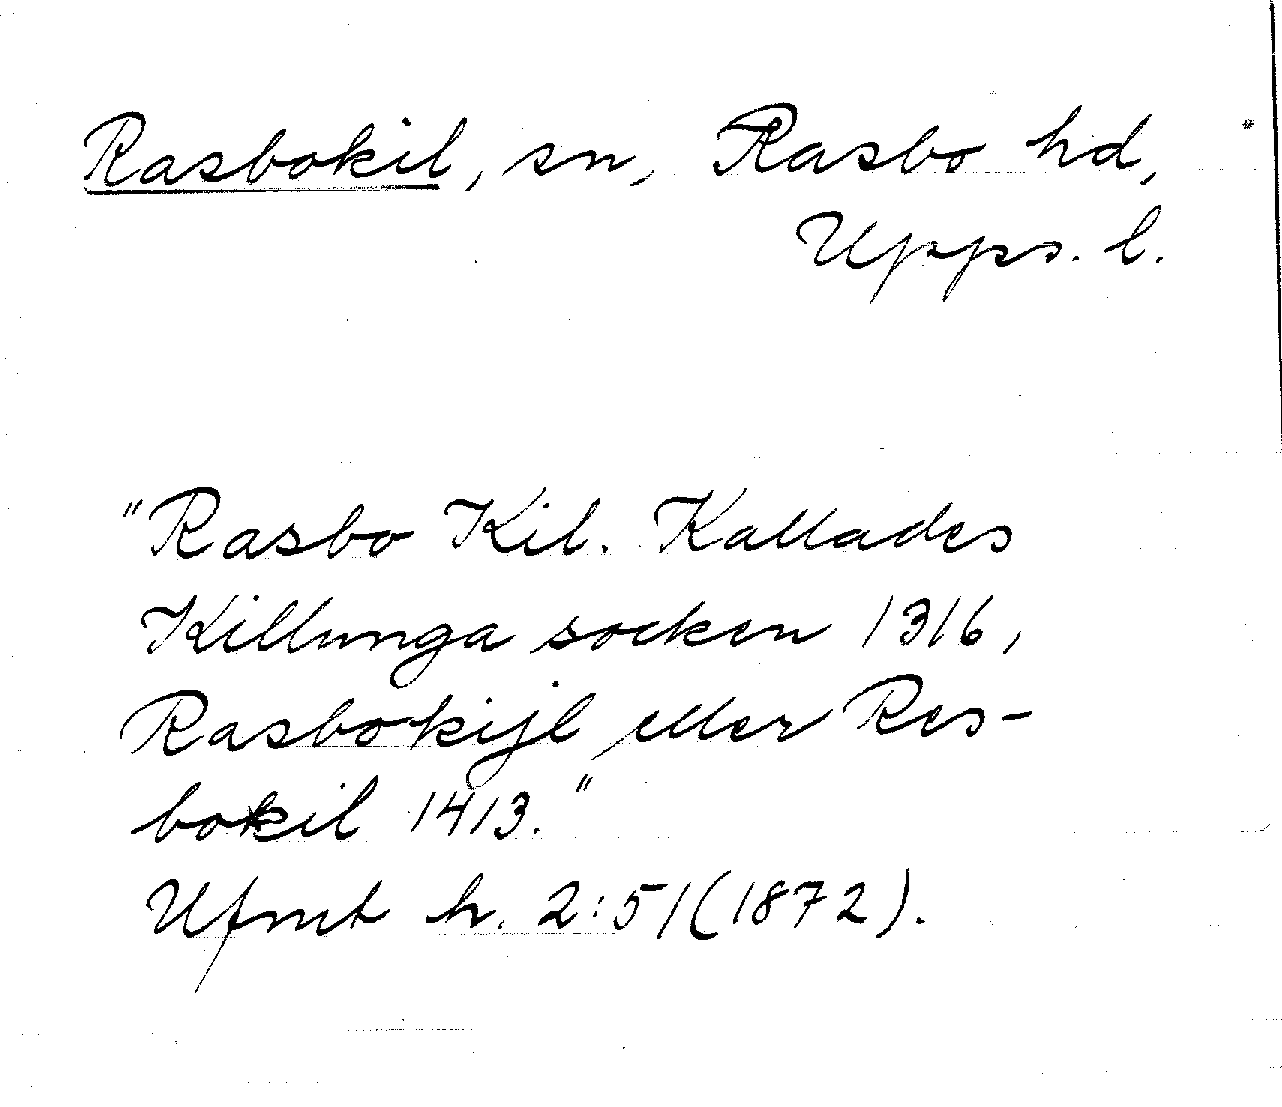 Rasbokil, sn, Rasbo hd,
Upps. l.
"Rasbo Kil. Kallades
Killunga socken 1316,
Rasbokijl eller Res-
bokil 1413."
Ufmt h. 2:51(1872).